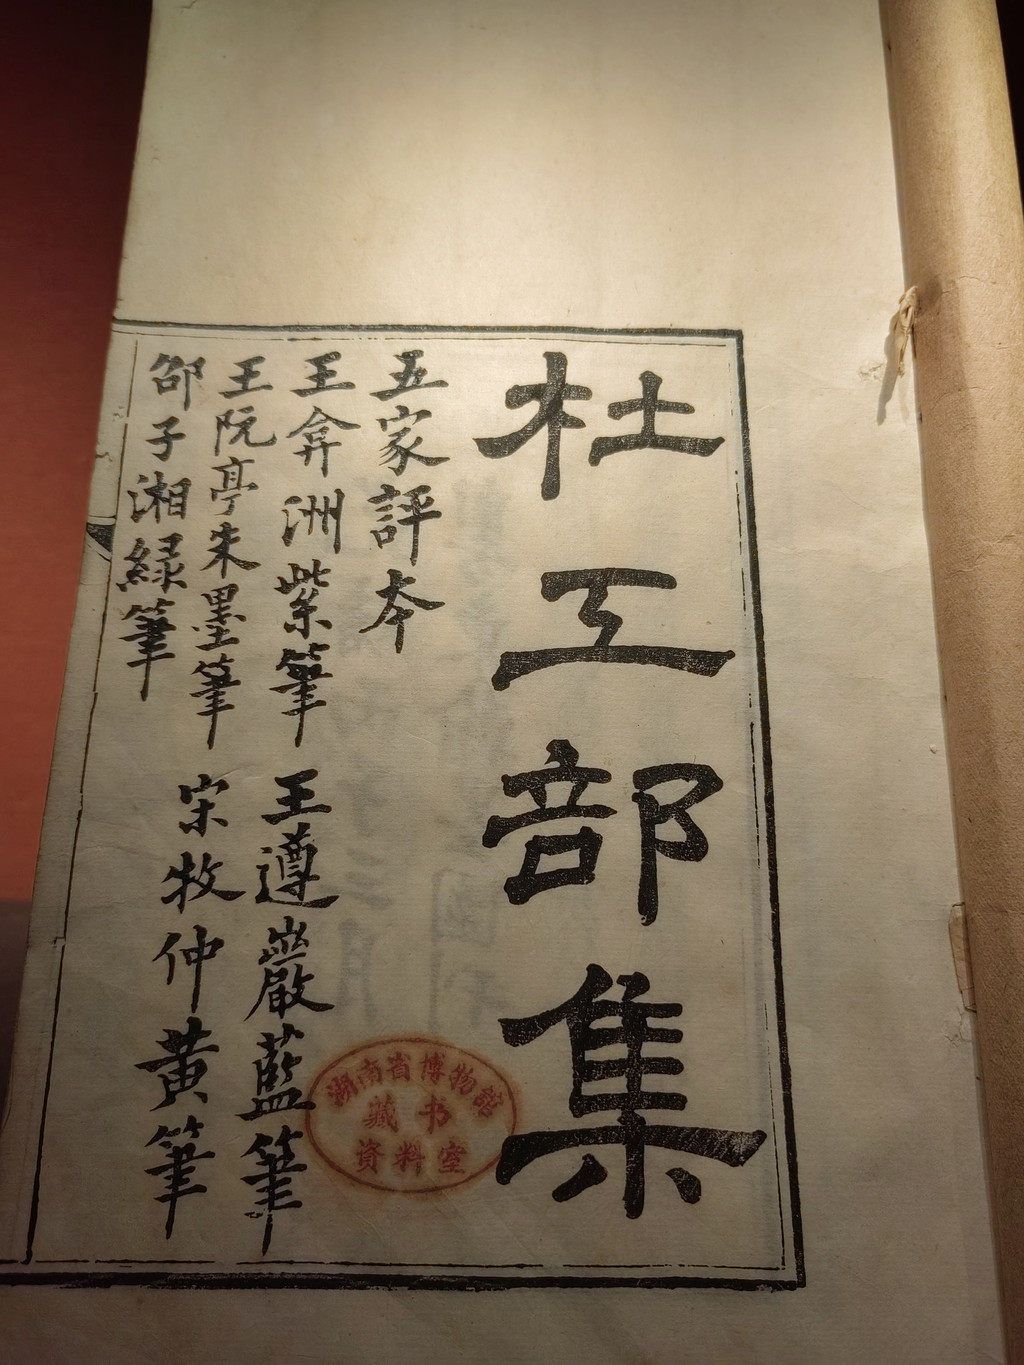 杜工部集
五家評本
王弇洲紫筆　王遵巖藍筆
王阮亭朱墨筆　宋牧仲黃筆
邵子湘綠筆
湖南省博物館
藏书
資料室